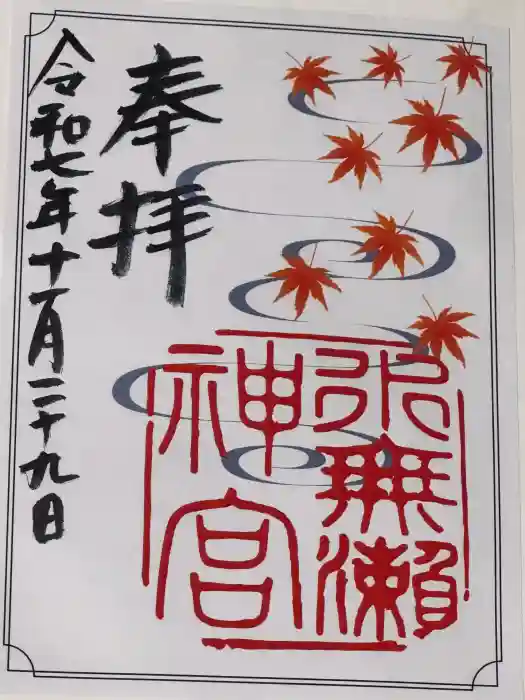 水無瀬
神宮
奉拝
令和七年十一月二十九日